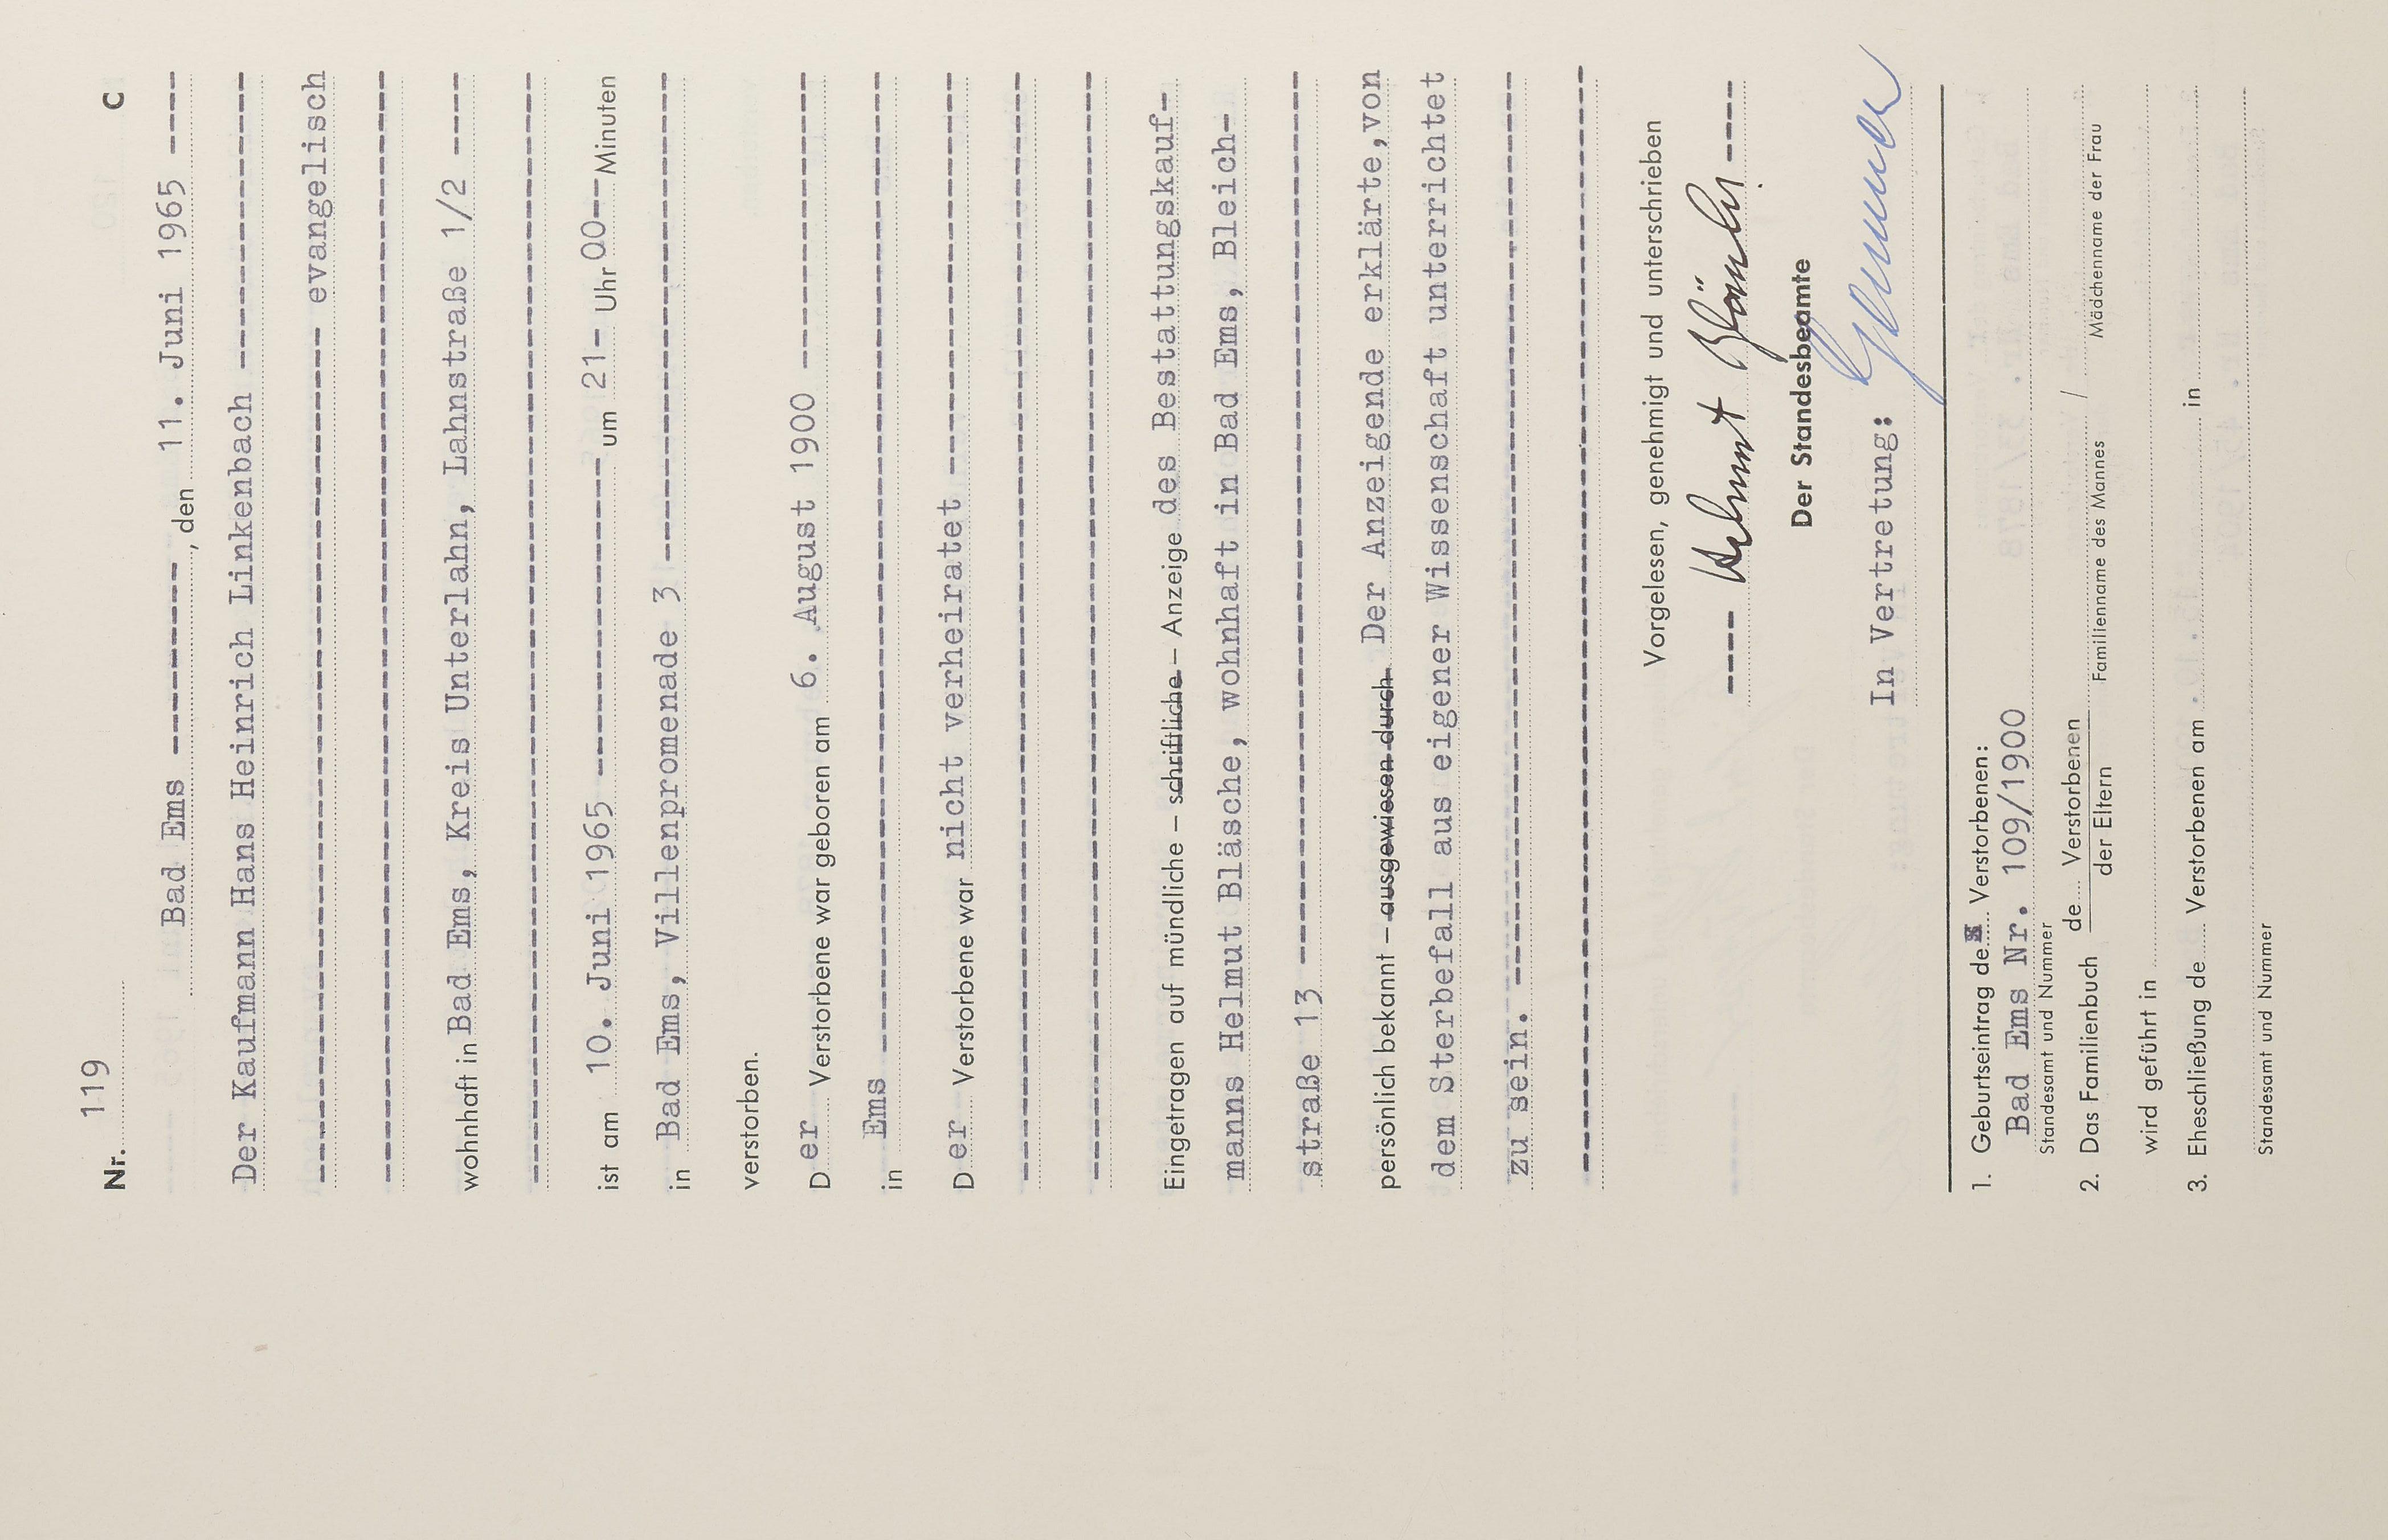 Nr. 119 C
Bad Ems ----------, den 11. Juni 1965 ----
Der Kaufmann Hans Heinrich Linkenbach ---------------
---------------------------------------------- evangelisch
wohnhaft in Bad Ems, Kreis Unterlahn, Lahnstraße 1/2 ----
ist am 10. Juni 1965 ---------------- um 21- Uhr 00-- Minuten
in Bad Ems, Villenpromenade 3 --------------------------
verstorben.
Der Verstorbene war geboren am 6. August 1900 ----------------
in Ems ----------------------------------------------------
Der Verstorbene war nicht verheiratet ---------------------
Eingetragen auf mündliche – schriftliche – Anzeige des Bestattungskauf-
manns Helmut Bläsche, wohnhaft in Bad Ems, Bleich-
straße 13 ------------------------------------------------
persönlich bekannt – ausgewiesen durch Der Anzeigende erklärte,von
dem Sterbefall aus eigener Wissenschaft unterrichtet
zu sein. --------------------------------------------------
Vorgelesen, genehmigt und unterschrieben
---- Helmut Bläsche ----
Der Standesbeamte
In Vertretung:
1. Geburtseintrag des Verstorbenen:
Bad Ems Nr. 109/1900
Standesamt und Nummer
2. Das Familienbuch de Verstorbenen / der Eltern /
Familienname des Mannes Mädchenname der Frau
wird geführt in
3. Eheschließung de Verstorbenen am in
Standesamt und Nummer